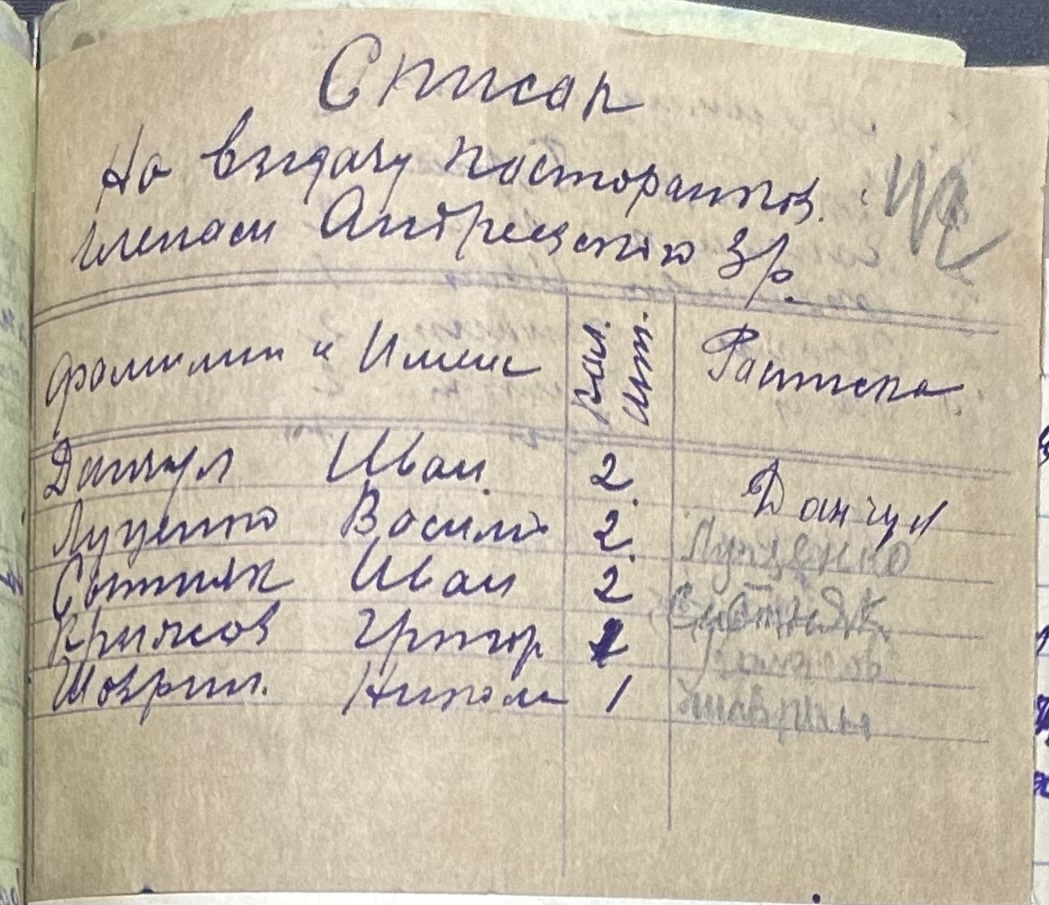 Список
На выдачу
членам Андреевского
фамилии и Имена Кол. шт. Расписка
Данчул Иван 2. Данчул
Луценко Василь 2. Луценко
Сытняк Иван 2 Сытняк
Крыжов Григор 1
Шаврин. Никола 1 шаврин